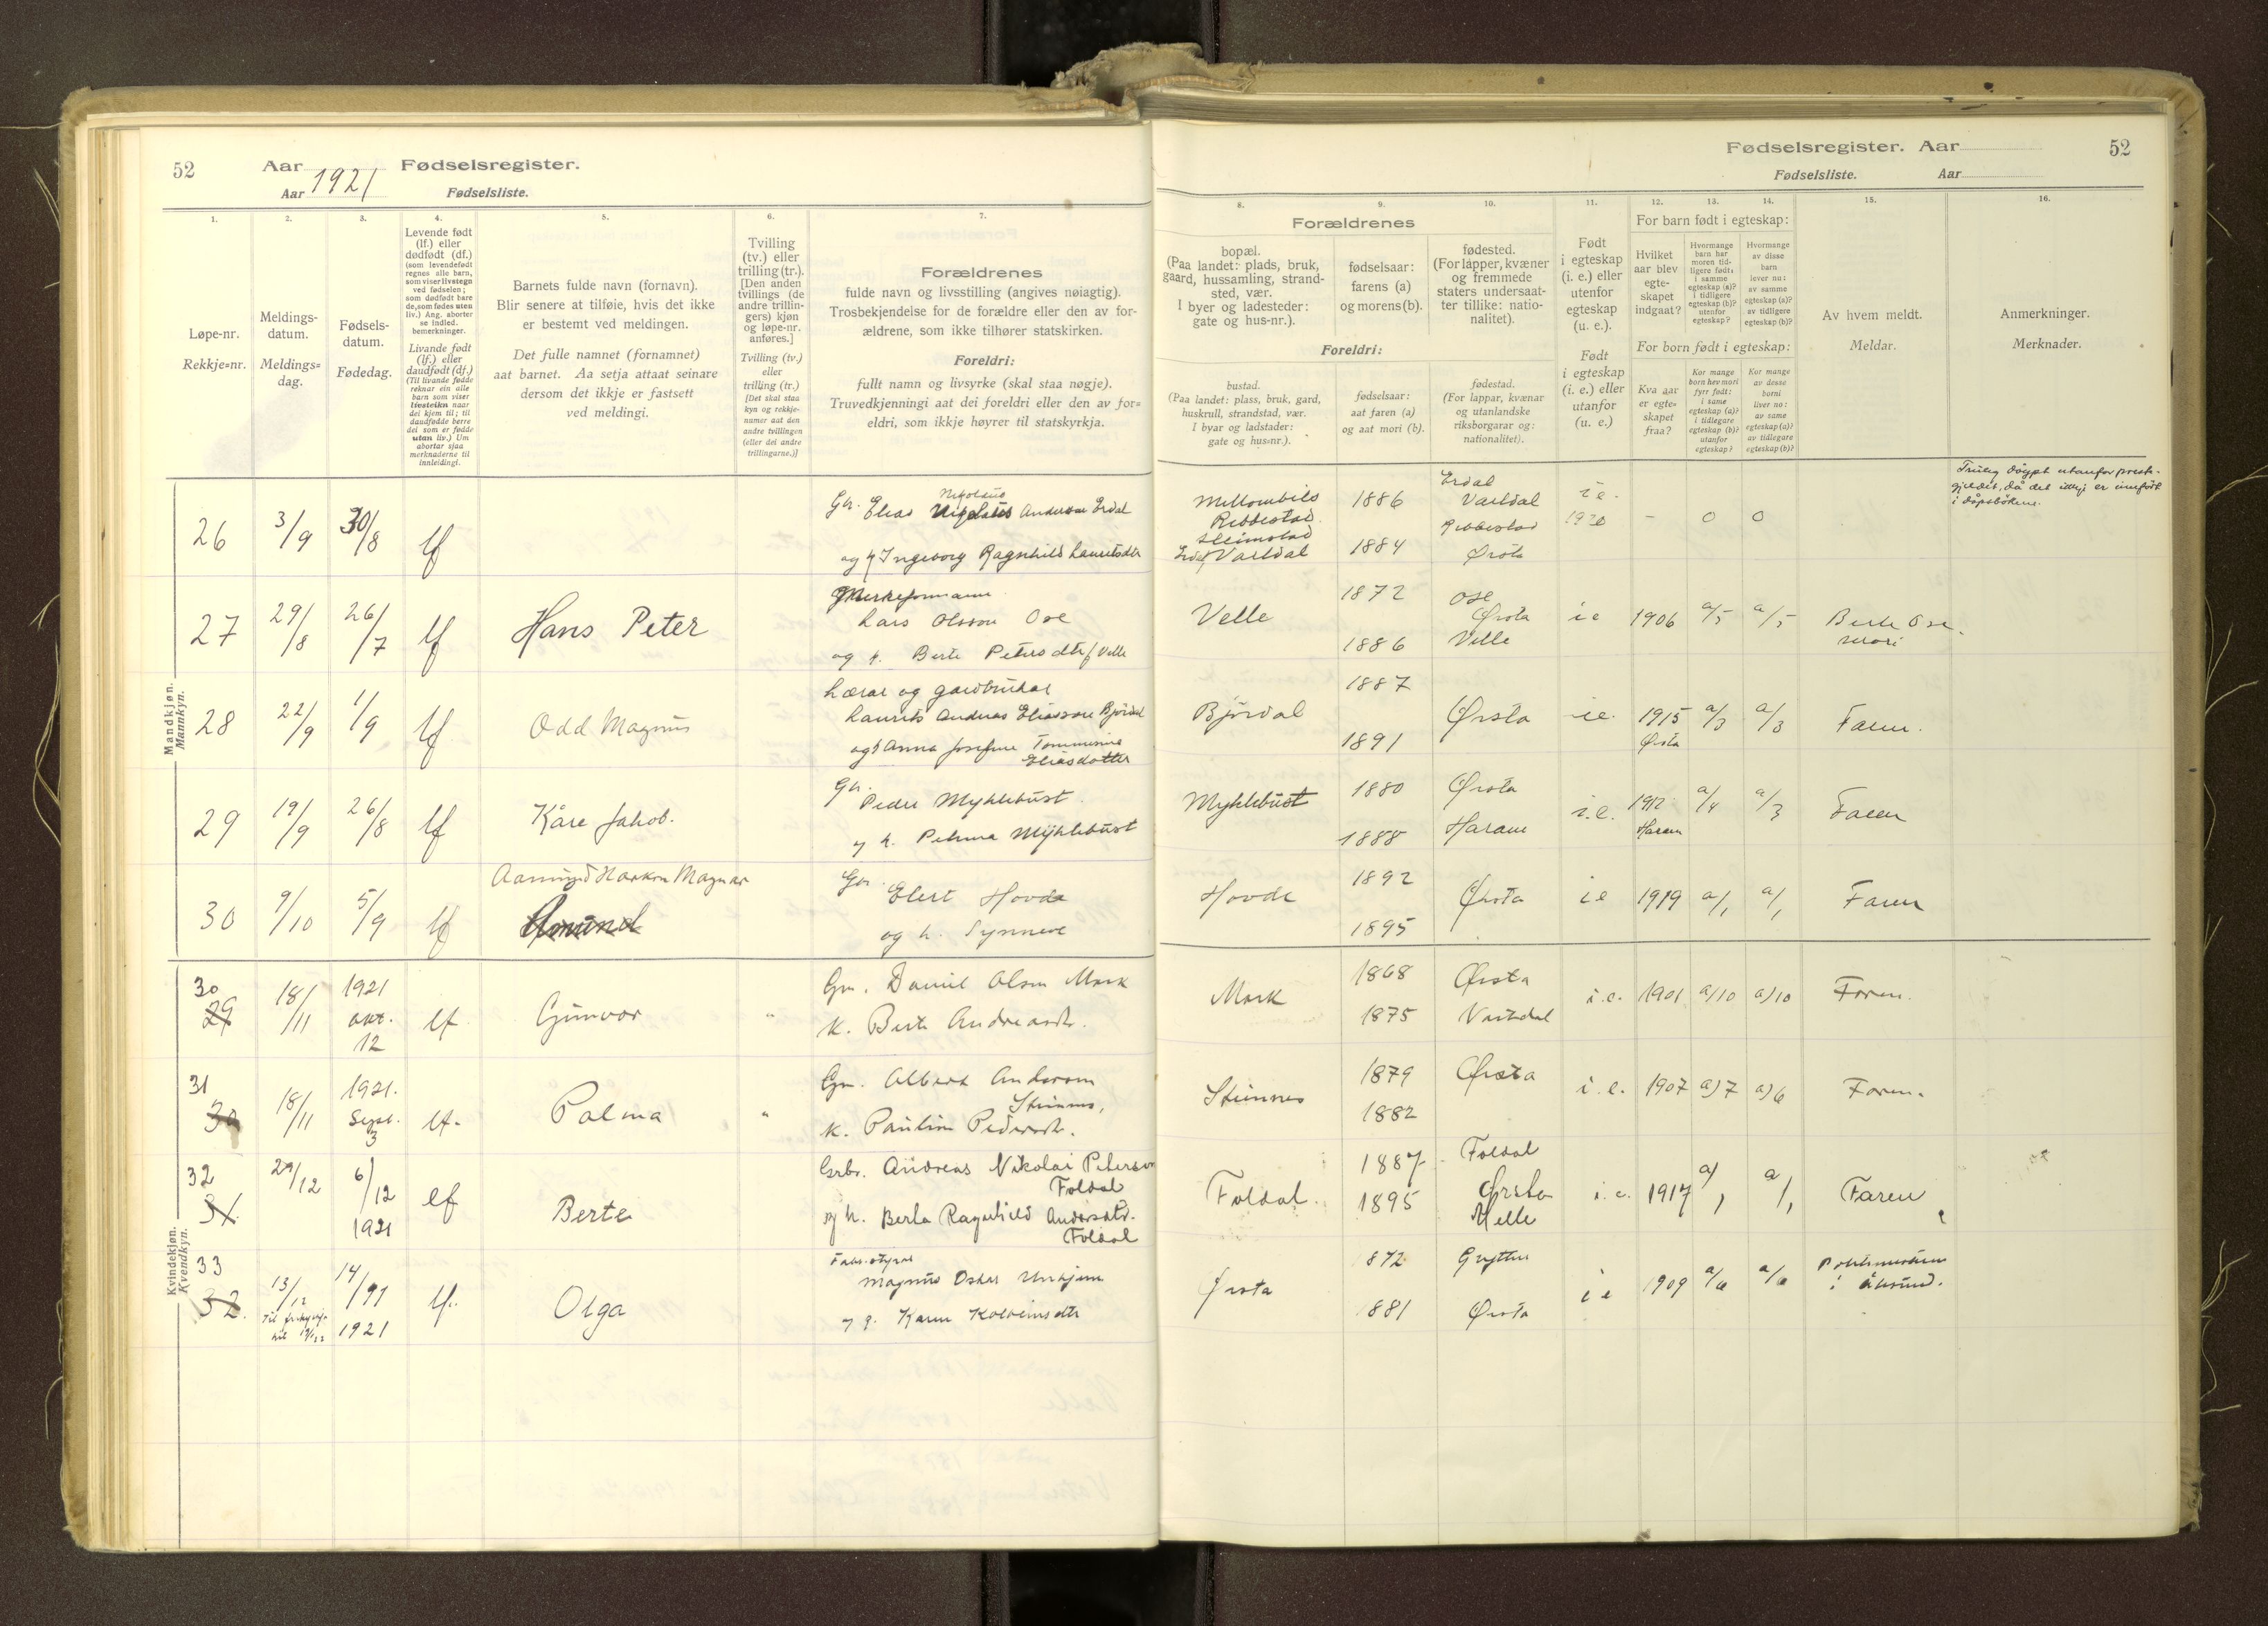 52
Aar
1921
Fødselsregister.
Aar
Fødselsliste.
1.
2.
3.
4.
5.
6.
7.
Løpe-nr.
Rekkje-nr.
Meldings-
datum.
Meldings-
dag.
Fødsels-
datum.
Fødedag.
Levende født
(lf.) eller
dødfødt (df.)
(som levendefødt
regnes alle barn,
som viser livstegn
ved fødselen;
som dødfødt bare
de, som fødes uten
liv.) Ang. aborter
se indled.
bemerkninger.
Livande født
(lf.) eller
daudfødt (df.)
(Til livande fødde
reknar ein alle
barn som viser
livsteikn naar
dei kjem til; til
daudfødde berre
dei som er fødde
utan liv.) Um
abortar sjaa
merknaderne til
innleidingi.
Barnets fulde navn (fornavn).
Blir senere at tilføie, hvis det ikke
er bestemt ved meldingen.
Det fulle namnet (fornamnet)
aat barnet. Aa setja attaat seinare
dersom det ikkje er fastsett
ved meldingi.
Tvilling
(tv.) eller
trilling (tr.).
[Den anden
tvillings (de
andre trillin-
gers) kjøn
og løpe-nr.
anføres.]
Tvilling (tv.)
eller
trilling (tr.)
[Det skal staa
kyn og rekkje-
numer aat den
andre tvillingen
(eller dei andre
trillingarne.)]
Forældrenes
fulde navn og livsstilling (angives nøiagtig).
Trosbekjendelse for de forældre eller den av for-
ældrene, som ikke tilhører statskirken.
Foreldri:
fullt namn og livsyrke (skal staa nøgje).
Truvedkjenningi aat dei foreldri eller den av for-
eldri, som ikkje høyrer til statskyrkja.
Mandkjøn.
Mannkyn.
26 3/9 30/8 lf
Elias Nikolaus Anderson Erdal
og k Ingeborg Ragnhild Lauritsdtr
27 29/8 26/7 lf Hans Peter
Lars Olsson Ose
og k. Berte Petersdtr f Velle
28 22/9 1/9 lf Odd Magnus
Lærar og gardbrukar
Laurits Andreas Eliasson Bjørdal
og k Anna Josefine Tommine
Eliasdotter
29 19/9 26/8 lf Kåre Jakob.
Peder Myklebust.
k. Petrina Myklebust
30 9/10 5/9 lf
Aamund Haakon Magnar
Amund
Elert Hovde
og k. Synneve
Kvindekjøn.
Kvendkyn.
30
29 18/11 1921 okt. 12 lf Gunvor "
Gm. Daniel Olsen Mork
K. Berte Andreasdr.
31
30 18/11 1921. Sept. 3 lf. Palma "
Gm. Albert Anderson
Steinnes,
K. Pauline Pedersdr.
32
31 29/12 6/12 1921 lf Berte
Grbr. Andreas Nikolai Peterson
Foldal
og k. Berta Ragnhild Andersdtr.
Foldal
33
32. 13/12 14/11 1921 lf. Olga
Magnus Oskar
Karen Kolbeinsdtr
Fødselsregister. Aar
52
Fødselsliste.
Aar
8.
9.
10.
11.
12.
13.
14.
15.
16.
Forældrenes
bopæl.
(Paa landet: plads, bruk,
gaard, hussamling, strand-
sted, vær.
I byer og ladesteder:
gate og hus-nr.).
fødselsaar:
farens (a)
og morens (b).
fødested.
(For lapper, kvæner
og fremmede
staters undersaat-
ter tillike: natio-
nalitet).
Foreldri:
bustad.
(Paa landet: plass, bruk, gard,
huskrull, strandstad, vær.
I byar og ladstader:
gate og hus-nr.).
fødselsaar:
aat faren (a)
og aat mori (b).
fødestad.
(For lappar, kvænar
og utanlandske
riksborgarar og:
nationalitet).
Født
i egteskap
(i. e.) eller
utenfor
egteskap
(u. e.).
Født
i egteskap
(i. e.) eller
utanfor
(u. e.)
For barn født i egteskap:
Hvilket
aar blev
egte-
skapet
indgaat?
Hvormange
barn har
moren tid-
ligere født:
i samme
egteskap (a)?
i tidligere
egteskap (b)?
utenfor
egteskap?
Hvormange
av disse
barn
lever nu:
av samme
egteskap (a)?
av tidligere
egteskap (b)?
For born født i egteskap:
Kva aar
er egte-
skapet
fraa?
Kor mange
born hev mori
fyrr født:
i same
egteskap (a)?
i tidlegare
egteskap (b)?
utanfor
egteskap?
Kor mange
av desse
borni
liver no:
av same
egteskap (a)?
av tidlegare
egteskap (b)?
Av hvem meldt.
Meldar.
Anmerkninger.
Merknader.
Ribbestad
Vartdal
1886
1884
Erdal
Vartdal
Ribbestad
Ørsta
i e.
1920 - 0 0
Truleg døypt utanfor preste-
gjeldet, då det ikkje er innført
i dåpsboken.
Velle
1872
1886
Ose
Ørsta
Velle
i e 1906 a/5 a/5
Berte Ose.
mori
Bjørdal
1887
1891
Ørsta i.e. 1915
Ørsta
a/3 a/3 Faren.
Myklebust
1880
1888
Ørsta
Haram
i.e. 1912
Haram
a/4 a/3 Faren
Hovde
1892
1895
Ørsta i e 1919 a/1 a/1 Faren
Mork
1868
1875
Ørsta
Vartdal
i.e. 1901 a/10 a/10 Faren.
Steinnes
1879
1882
Ørsta i.e. 1907 a)7 a)6 Faren.
Foldal.
1887
1895
Foldal
Ørsta
Velle
i.e. 1917 a/1 a/1 Faren
Ørsta
872
881
Grytten
Ørsta
i e 1909 a/6 a/6